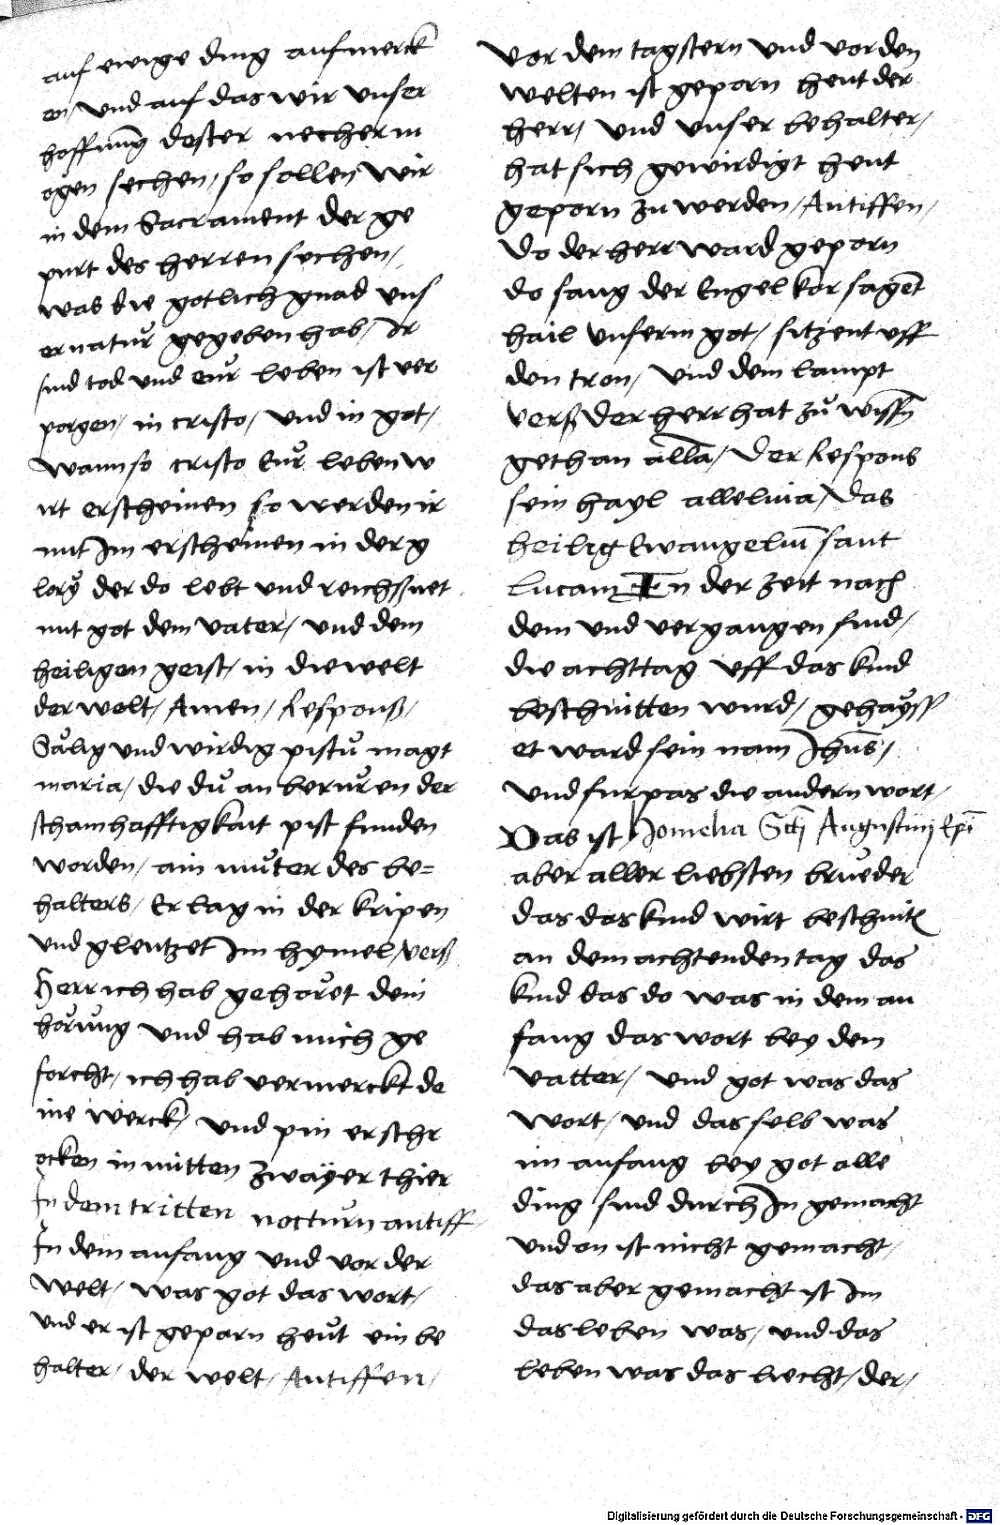 auf ewige ding aufmerck
en/ und auf das wir unser
hoffnung dester necher m
ogen sechen/ so sollen wir
in dem Sacrament der ge
purt des herren suchen/
was die gotlich gnad uns
er natur gegeben hab/ Ir
sind tod und eur leben ist ver
porgen/ in cristo/ und in got/
Wann so cristo Eur leben w
irt erscheinen so werden ir
mit Im erscheinen in der g
lory der do lebt und reichssnet
mit got dem vater/ und dem
heiligen geist/ in die welt
der welt/ Amen/ Respons/
Sälig und wirdig pistu magt
maria/ die du an beruren der
schamhafftigkait pist funden
worden/ ain muter des be=
halters/ Er lag in der kripen
und glentzet Im hymel/ verß
Herr ich hab gehöret dein
hörung und hab mich ge
forcht/ ich hab vermerckt de
ine werck/ und pin erschr
ocken in mitten zwayer thier
In dem tritten nocturn antiff
In dem anfang und vor der
welt/ was got das wort/
und er ist geparn heut ein be
halter/ der welt/ Antiffen/
Vor dem tagstern und vor den
welten ist geporn heut der
herr/ und unser behalter/
hat sich gewirdigt heut
geporn zu werden/ Antiffen/
Do der herr ward geporn
do sang der Engel kor sagent
hail unserm got/ sitzent uff
den tron/ und dem lampt
verß der herr hat zu wissen
gethan alla/ Der Respons
sein hayl alleluia/ Das
heilig Ewangelium sant
Lucam In der zeit nach
dem und vergangen sind/
die achttag uff das kind
beschnitten wurd/ gehayss
et ward sein nam Jhus/
und furpas die andern wort/
Das ist Jomelia Scti Augustini Epi
aber aller liebsten brueder
das das kind wirt beschnite
an dem achtenden tag das
kind das do was in dem an
fang das wort bey dem
vatter/ und got was das
wort/ und das selb was
im anfang bey got alle
ding sind durch In gemacht
und on ist nicht gemacht/
das aber gemacht ist Im
das leben was/ und das
leben was das liecht/ der/
Digitalisierung gefördert durch die Deutsche Forschungsgemeinschaft - DFG